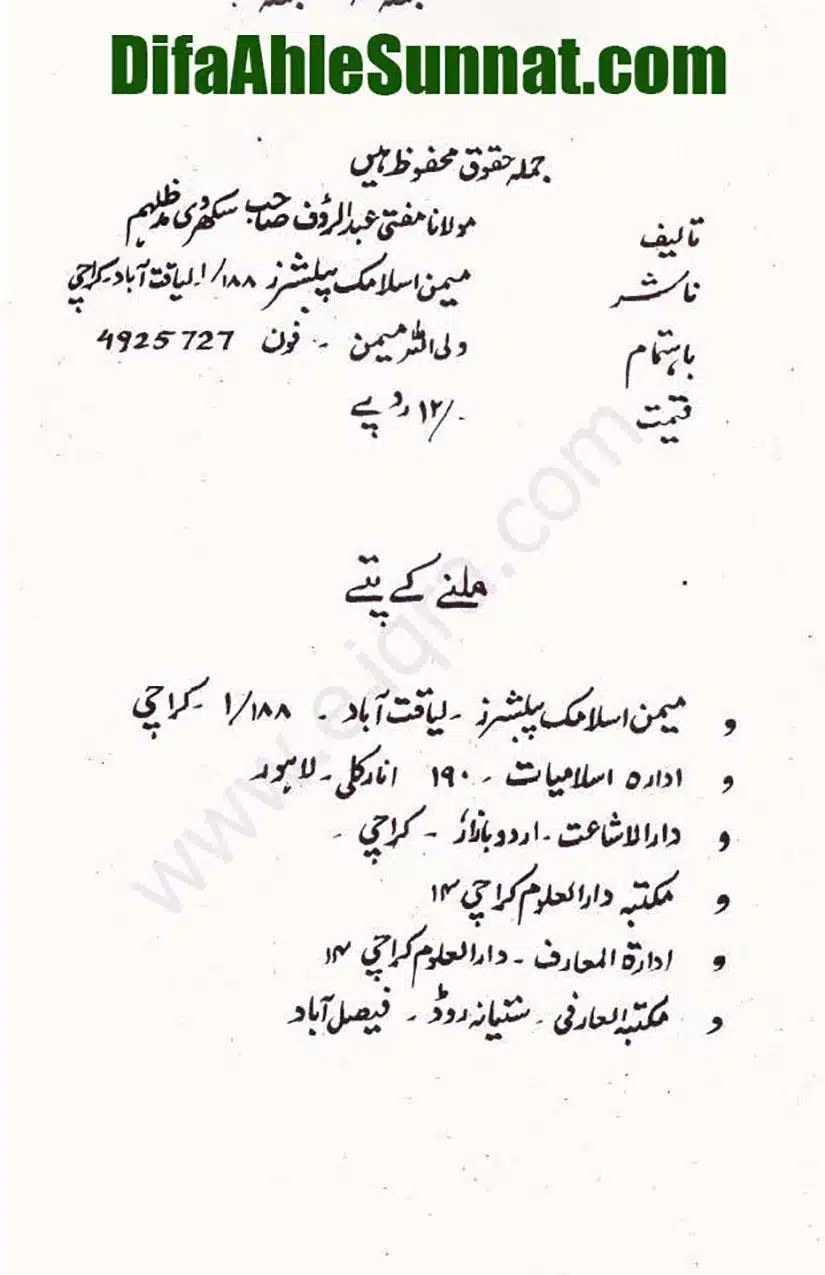 DifaAhleSunnat.com
جملہ حقوق محفوظ ہیں
تالیف مولانا مفتی عبدالرؤف صاحب سکھروی مدظلہم
ناشر میمن اسلامک پبلشرز ۱۸۸/۱ لیاقت آباد۔ کراچی
باہتمام ولی اللہ میمن ۔ فون 4925727
قیمت ۱۲/- روپے
ملنے کے پتے
میمن اسلامک پبلشرز ۔ لیاقت آباد ۔ ۱/۱۸۸ ۔ کراچی
ادارہ اسلامیات ۔ ۱۹۰ انارکلی ۔ لاہور
دارالاشاعت ۔ اردو بازار ۔ کراچی ۔
مکتبہ دارالعلوم کراچی ۱۴
ادارۃ المعارف ۔ دارالعلوم کراچی ۱۴
مکتبہ العارفی ۔ ستیانہ روڈ ۔ فیصل آباد
www.e-iqra.com